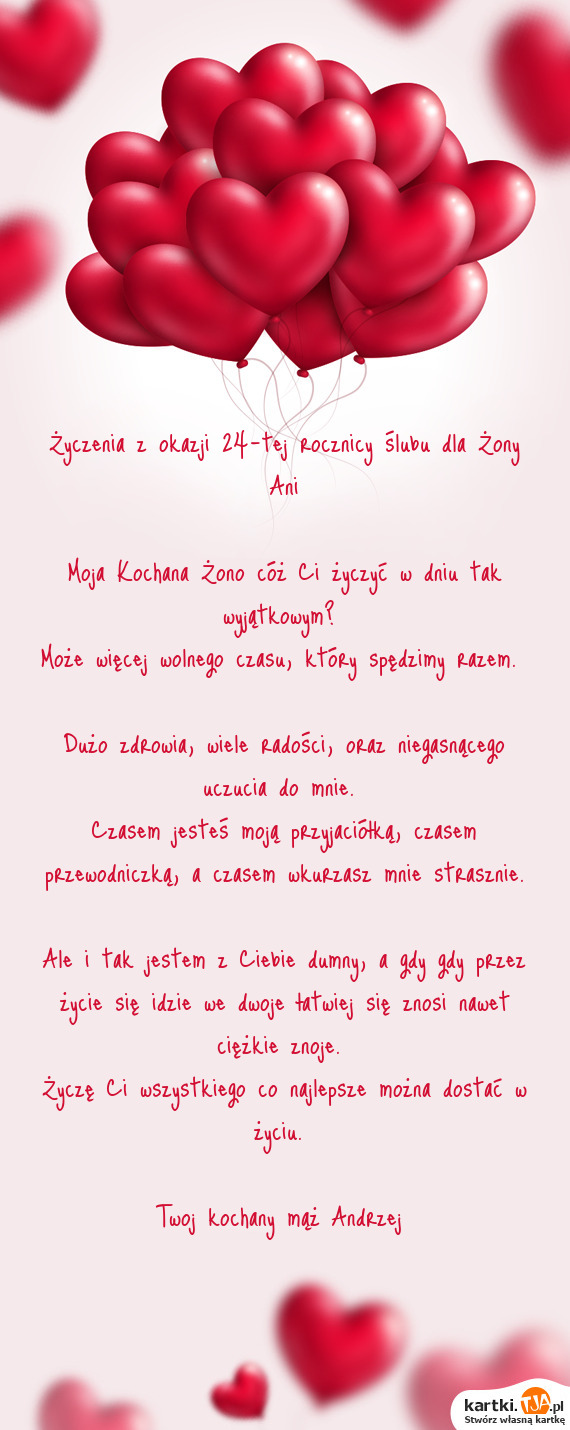 Życzenia z okazji 24-tej rocznicy ślubu dla Żony
Ani
Moja Kochana Żono cóż Ci życzyć w dniu tak
wyjątkowym?
Może więcej wolnego czasu, który spędzimy razem.
Dużo zdrowia, wiele radości, oraz niegasnącego
uczucia do mnie.
Czasem jesteś moją przyjaciółką, czasem
przewodniczką, a czasem wkurzasz mnie strasznie.
Ale i tak jestem z Ciebie dumny, a gdy gdy przez
życie się idzie we dwoje łatwiej się znosi nawet
ciężkie znoje.
Życzę Ci wszystkiego co najlepsze można dostać w
życiu.
Twoj kochany mąż Andrzej
kartki.TJA.pl
Stwórz własną kartkę